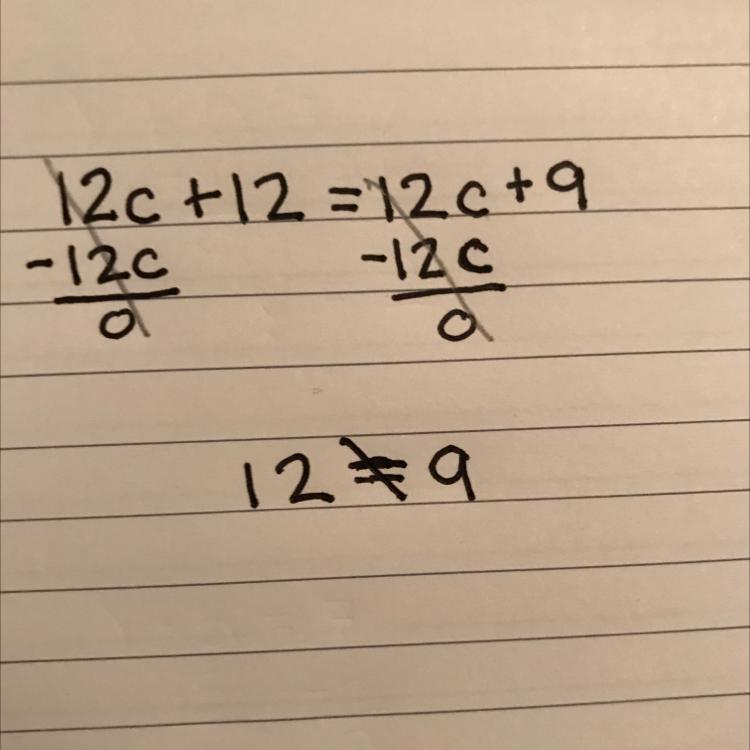 12c + 12 = 12c + 9
-12c -12c
0 0
12 ≠ 9